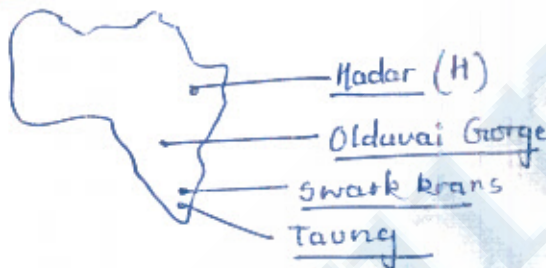 Hadar (H)
Olduvai Gorge
Swark krans
Taung